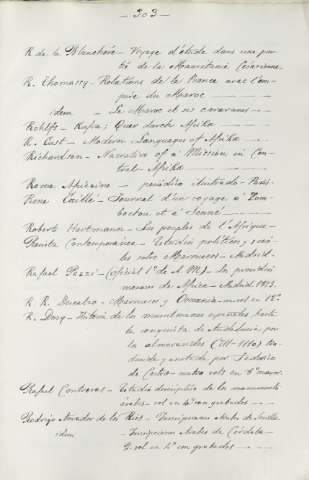 - 303 -
R. de la Blanchère - Voyage d'étude dans une par-
tie de la Mauretanie Césarienne.
R. Thomassy - Relations de la France avec l'em-
pire du Maroc
idem - Le Maroc et ses caravanes
Rohlfs - Kufra: Quer durch Afrika
R. Cust - Modern Languages of Afrika
Richardson - Narrative of a Mission in Cen-
tral Afrika
Roma Africaine - periódico ilustrado - Paris
René Caillé - Journal d'un voyage a Tom-
bouctou et à Jenné
Roberto Hartmann - Les peuples de l'Afrique
Revista Contemporanea - Estudios politicos y socia-
les sobre Marruecos - Madrid
Rafael (Oficial 1º de A. M.) - Las posesio-
nes de Africa - Madrid
R. R. - Marruecos y en 12º
R. Dozy - Historia de los musulmanes españoles hasta
la conquista de Andalucia por
los almoravides (711-1110) tra-
ducida y anotada por Federico
de Castro - cuatro vols en 8º mayor.
Rafael Contreras - Estudio descriptivo de los monumentos
árabes - vol en 4º con grabados
Rodrigo Amador de los Rios - Inscripciones Arabes de Sevilla
idem - Inscripciones Arabes de Córdoba
vol en 4º con grabados